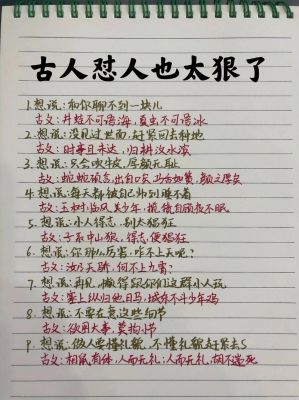 古人怼人也太狠了
1.想说:和你聊不到一块儿
古文:井蛙不可语海,夏虫不可语冰
2.想说:没见过世面,赶紧回去种地
古文:时事且未达,归耕汶水滨
3.想说:只会吹牛皮,厚颜无耻
古文:蛇蛇硕言,出自口矣,巧舌如簧,颜之厚矣
4.想说:每天都被自己帅到睡不着
古文:玉树临风美少年,揽镜自顾夜不眠
5.想说:小人得志,别太猖狂
古文:子系中山狼,得志便猖狂
6.想说:你那么厉害,咋不上天呢?
古文:汝乃天骄,何不上九霄?
7.想说:再见,懒得跟你们这群小人玩
古文:塞上纵归他日马,城东不斗少年鸡
8.想说:不要在意这些细节
古文:欲图大事,莫拘小节
9.想说:做人要懂礼貌,不懂礼貌赶紧去S
古文:相鼠有体,人而无礼;人而无礼,胡不遄死